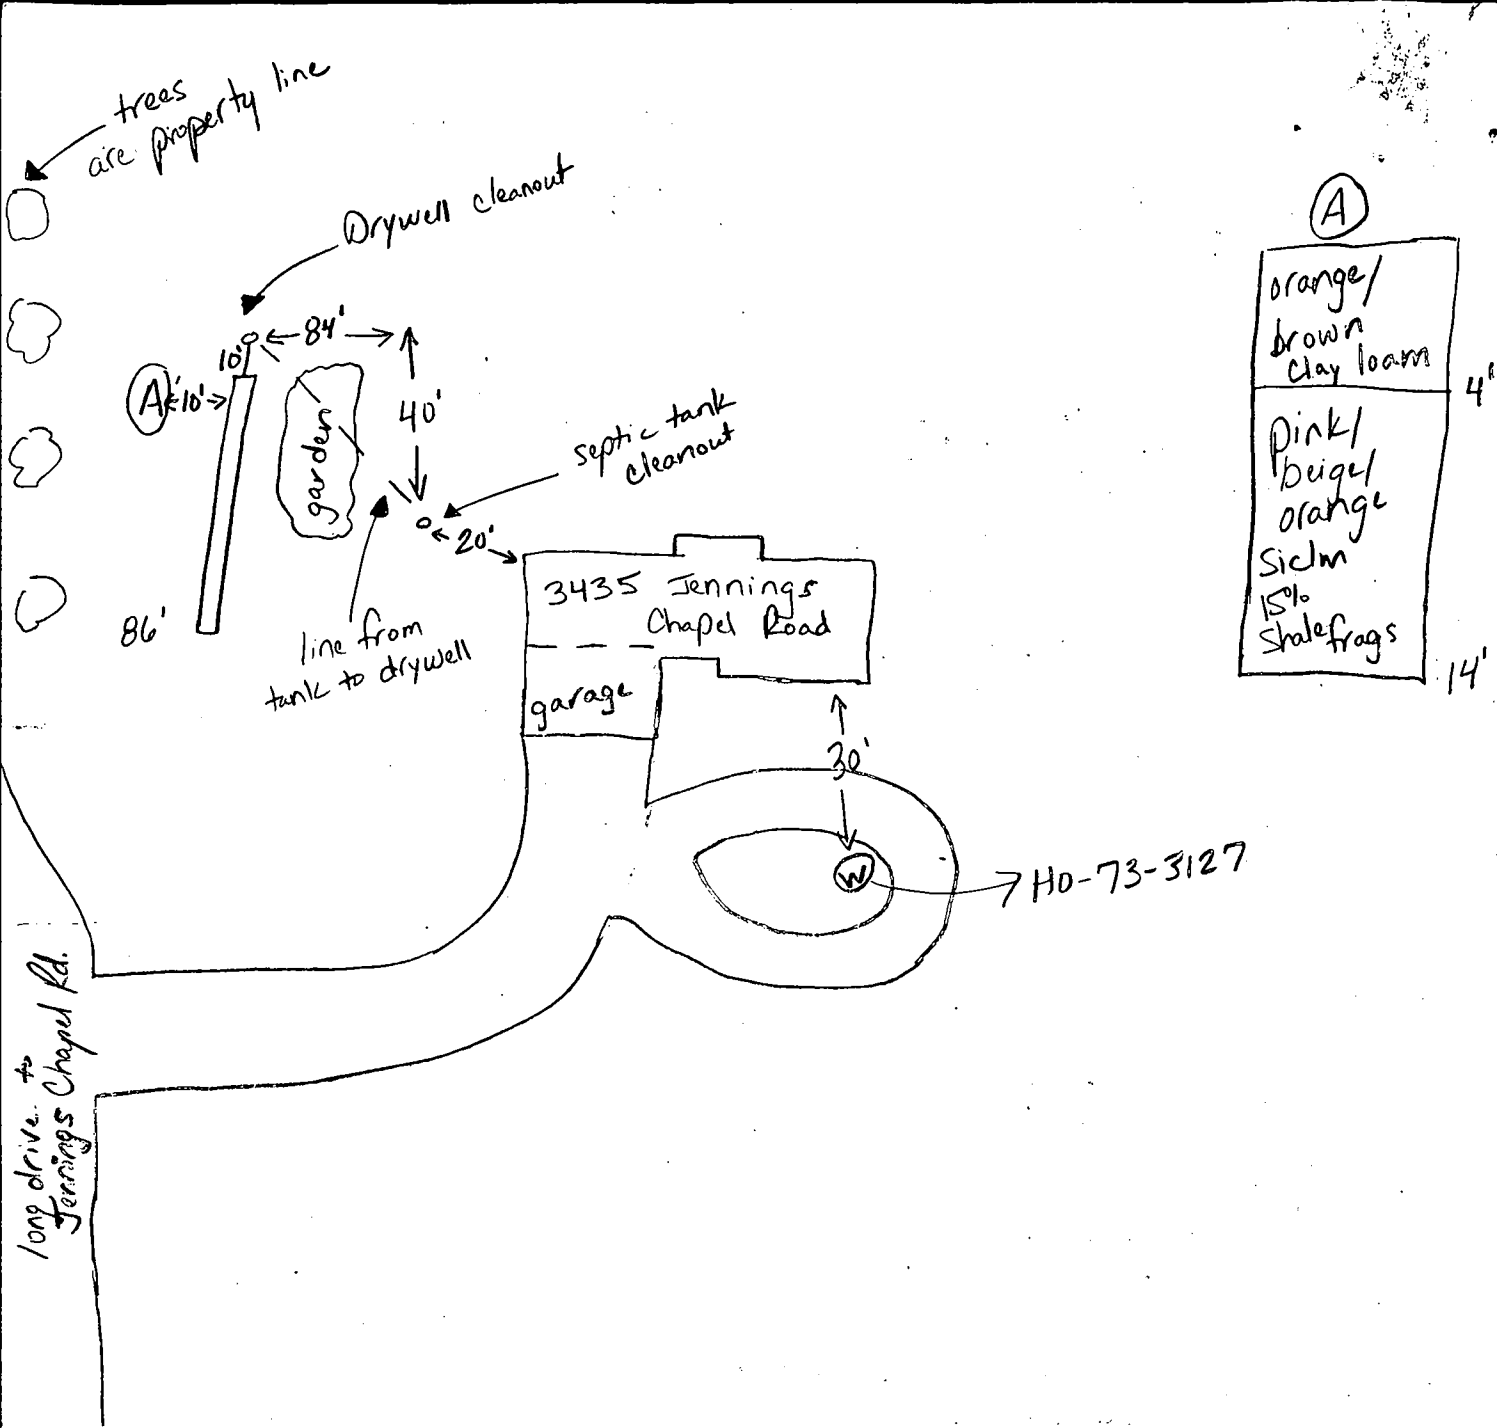 trees
are property line
Drywell cleanout
84'
10'
A
10'
40'
garden
septic tank
cleanout
20'
86'
line from
tank to drywell
3435 Jennings
Chapel Road
garage
30'
W
HO-73-3127
long drive to
Jennings Chapel Rd.
A
orange/
brown
clay loam
4'
pink/
beige/
orange
siclm
15%
shale frags
14'